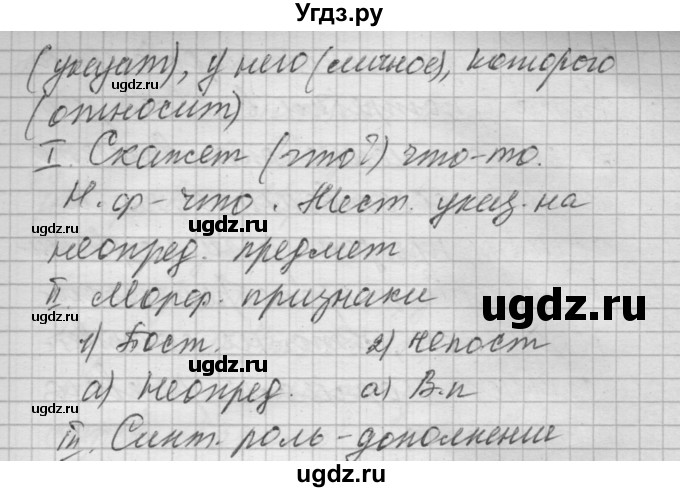 Угдз.ру
(указат), у него (личное), которого
(относит)
I. Скажет (что?) что-то.
Н.ф – что. Мест. указ. на
неопред. предмет
II. Морф. признаки
1) Пост. 2) Непост
а) Неопред. а) В.п
III. Синт. роль – дополнение
ugdz.ru
ugdz.ru
ugdz.ru
ugdz.ru
ugdz.ru
ugdz.ru
ugdz.ru